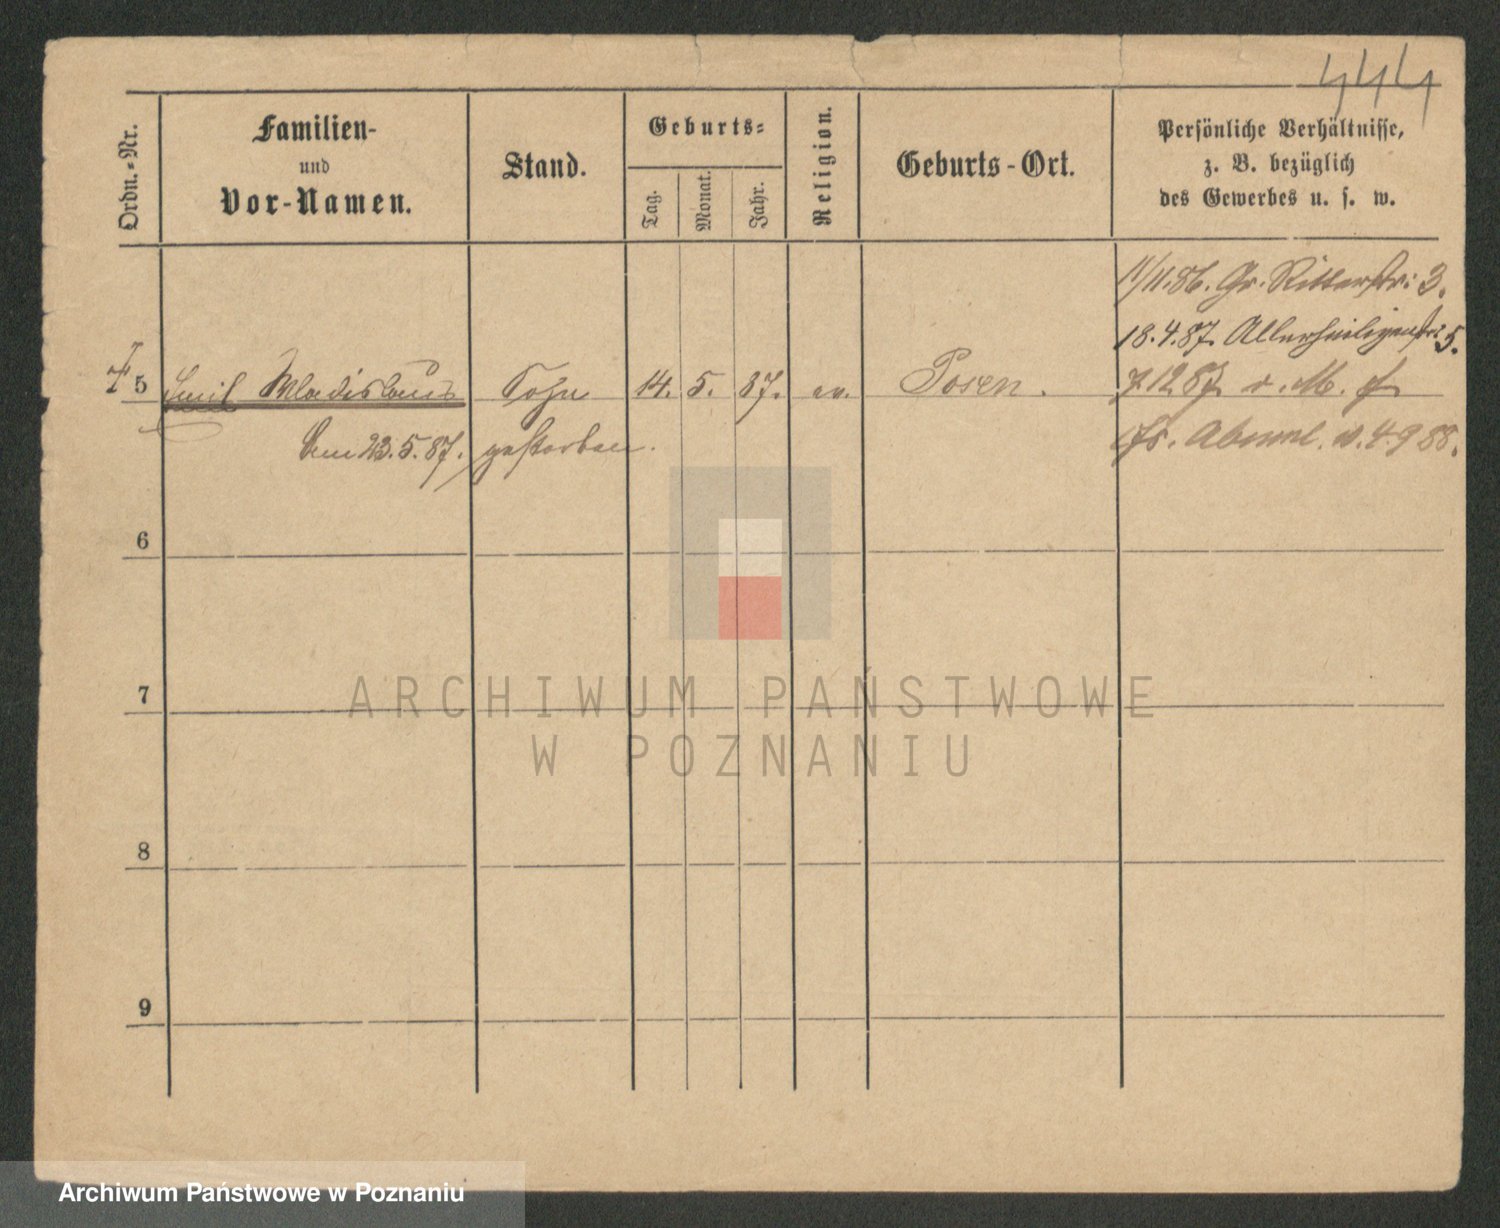 444
Ordn.-Nr.
Familien-
und
Vor-Namen.
Stand.
Geburts-
Tag.
Monat.
Jahr.
Religion.
Geburts-Ort.
Persönliche Verhältnisse,
z. B. bezüglich
des Gewerbes u. s. w.
11/11.86. Gr. Ritterstr: 3.
18.4.87. Allerheiligenstr. 5.
5 Emil Wladislaus Sohn 14. 5. 87. ev. Posen. 7.12 87
den 23.5.87. gestorben. 4.9 88.
6
7
8
9
ARCHIWUM PAŃSTWOWE
W POZNANIU
Archiwum Państwowe w Poznaniu